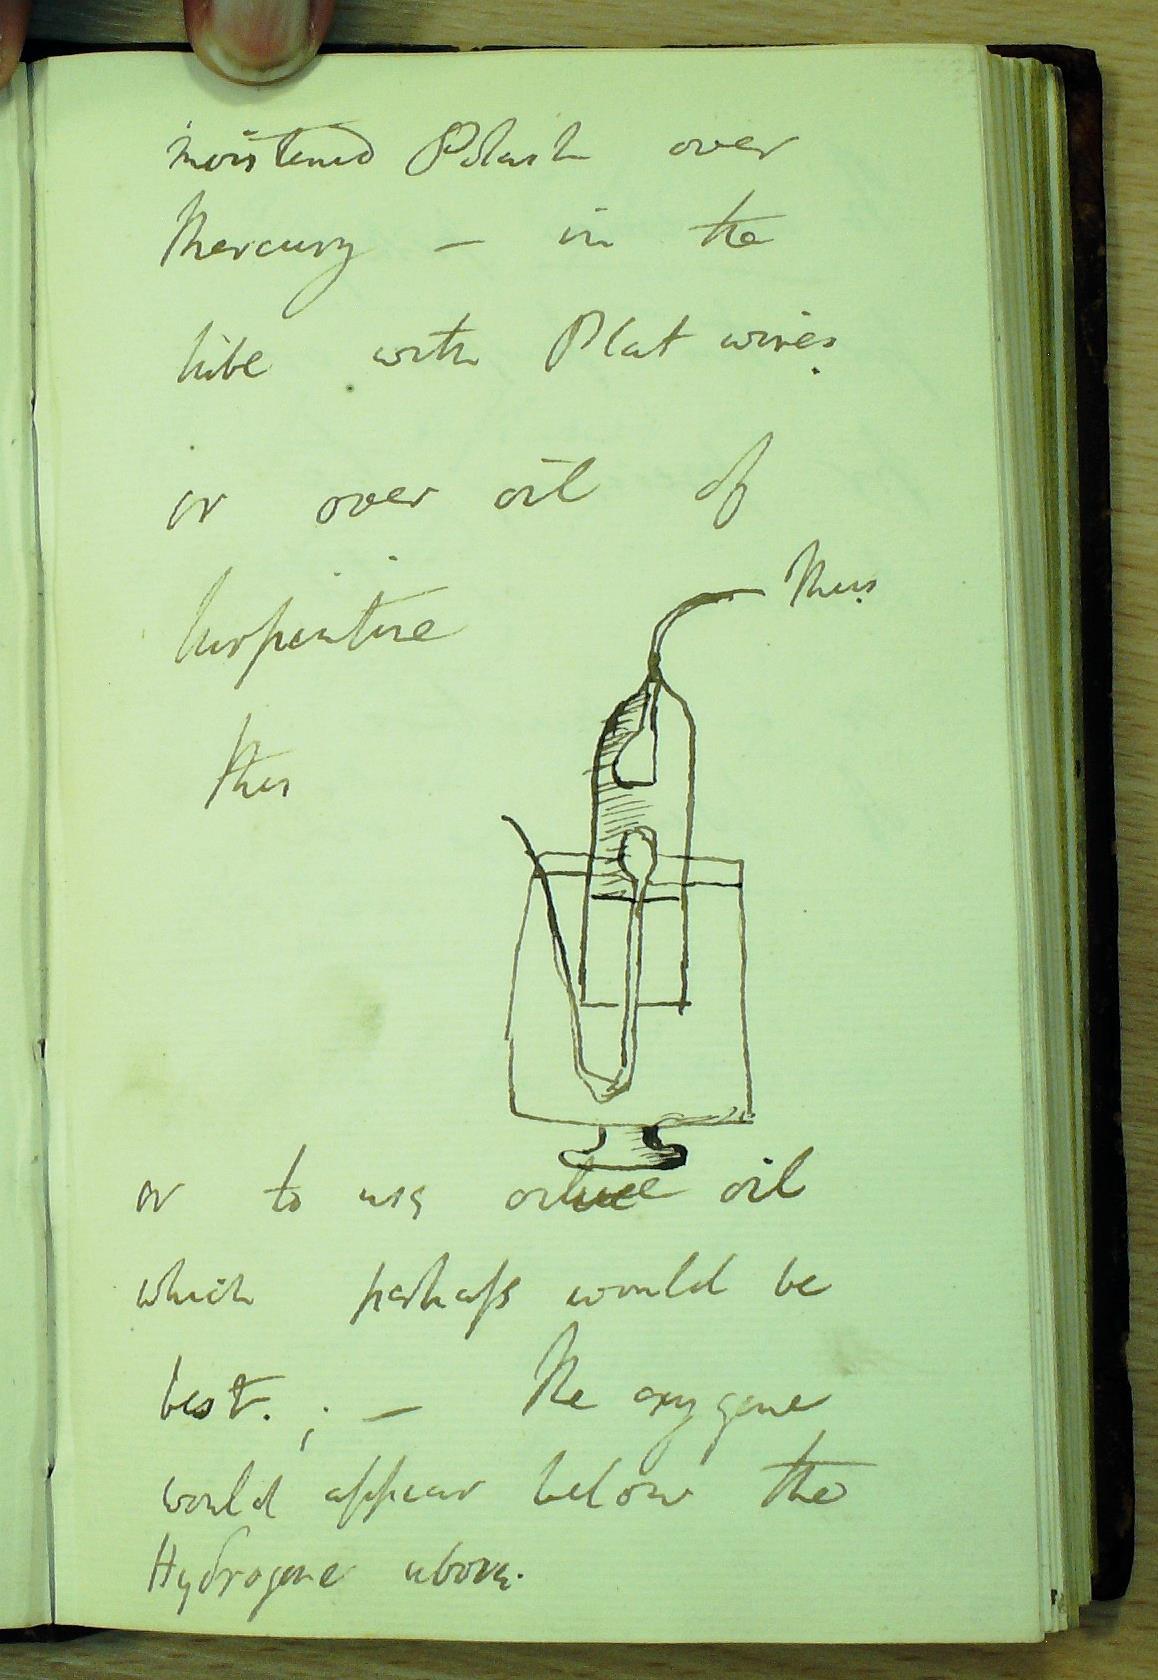 moistened Potash over
Mercury — in the
tube with Plat wires.
or over oil of
turpentine
Thus
thus
or to use olive oil
which perhaps would be
best. ; — The oxygene
would appear below the
Hydrogene above.